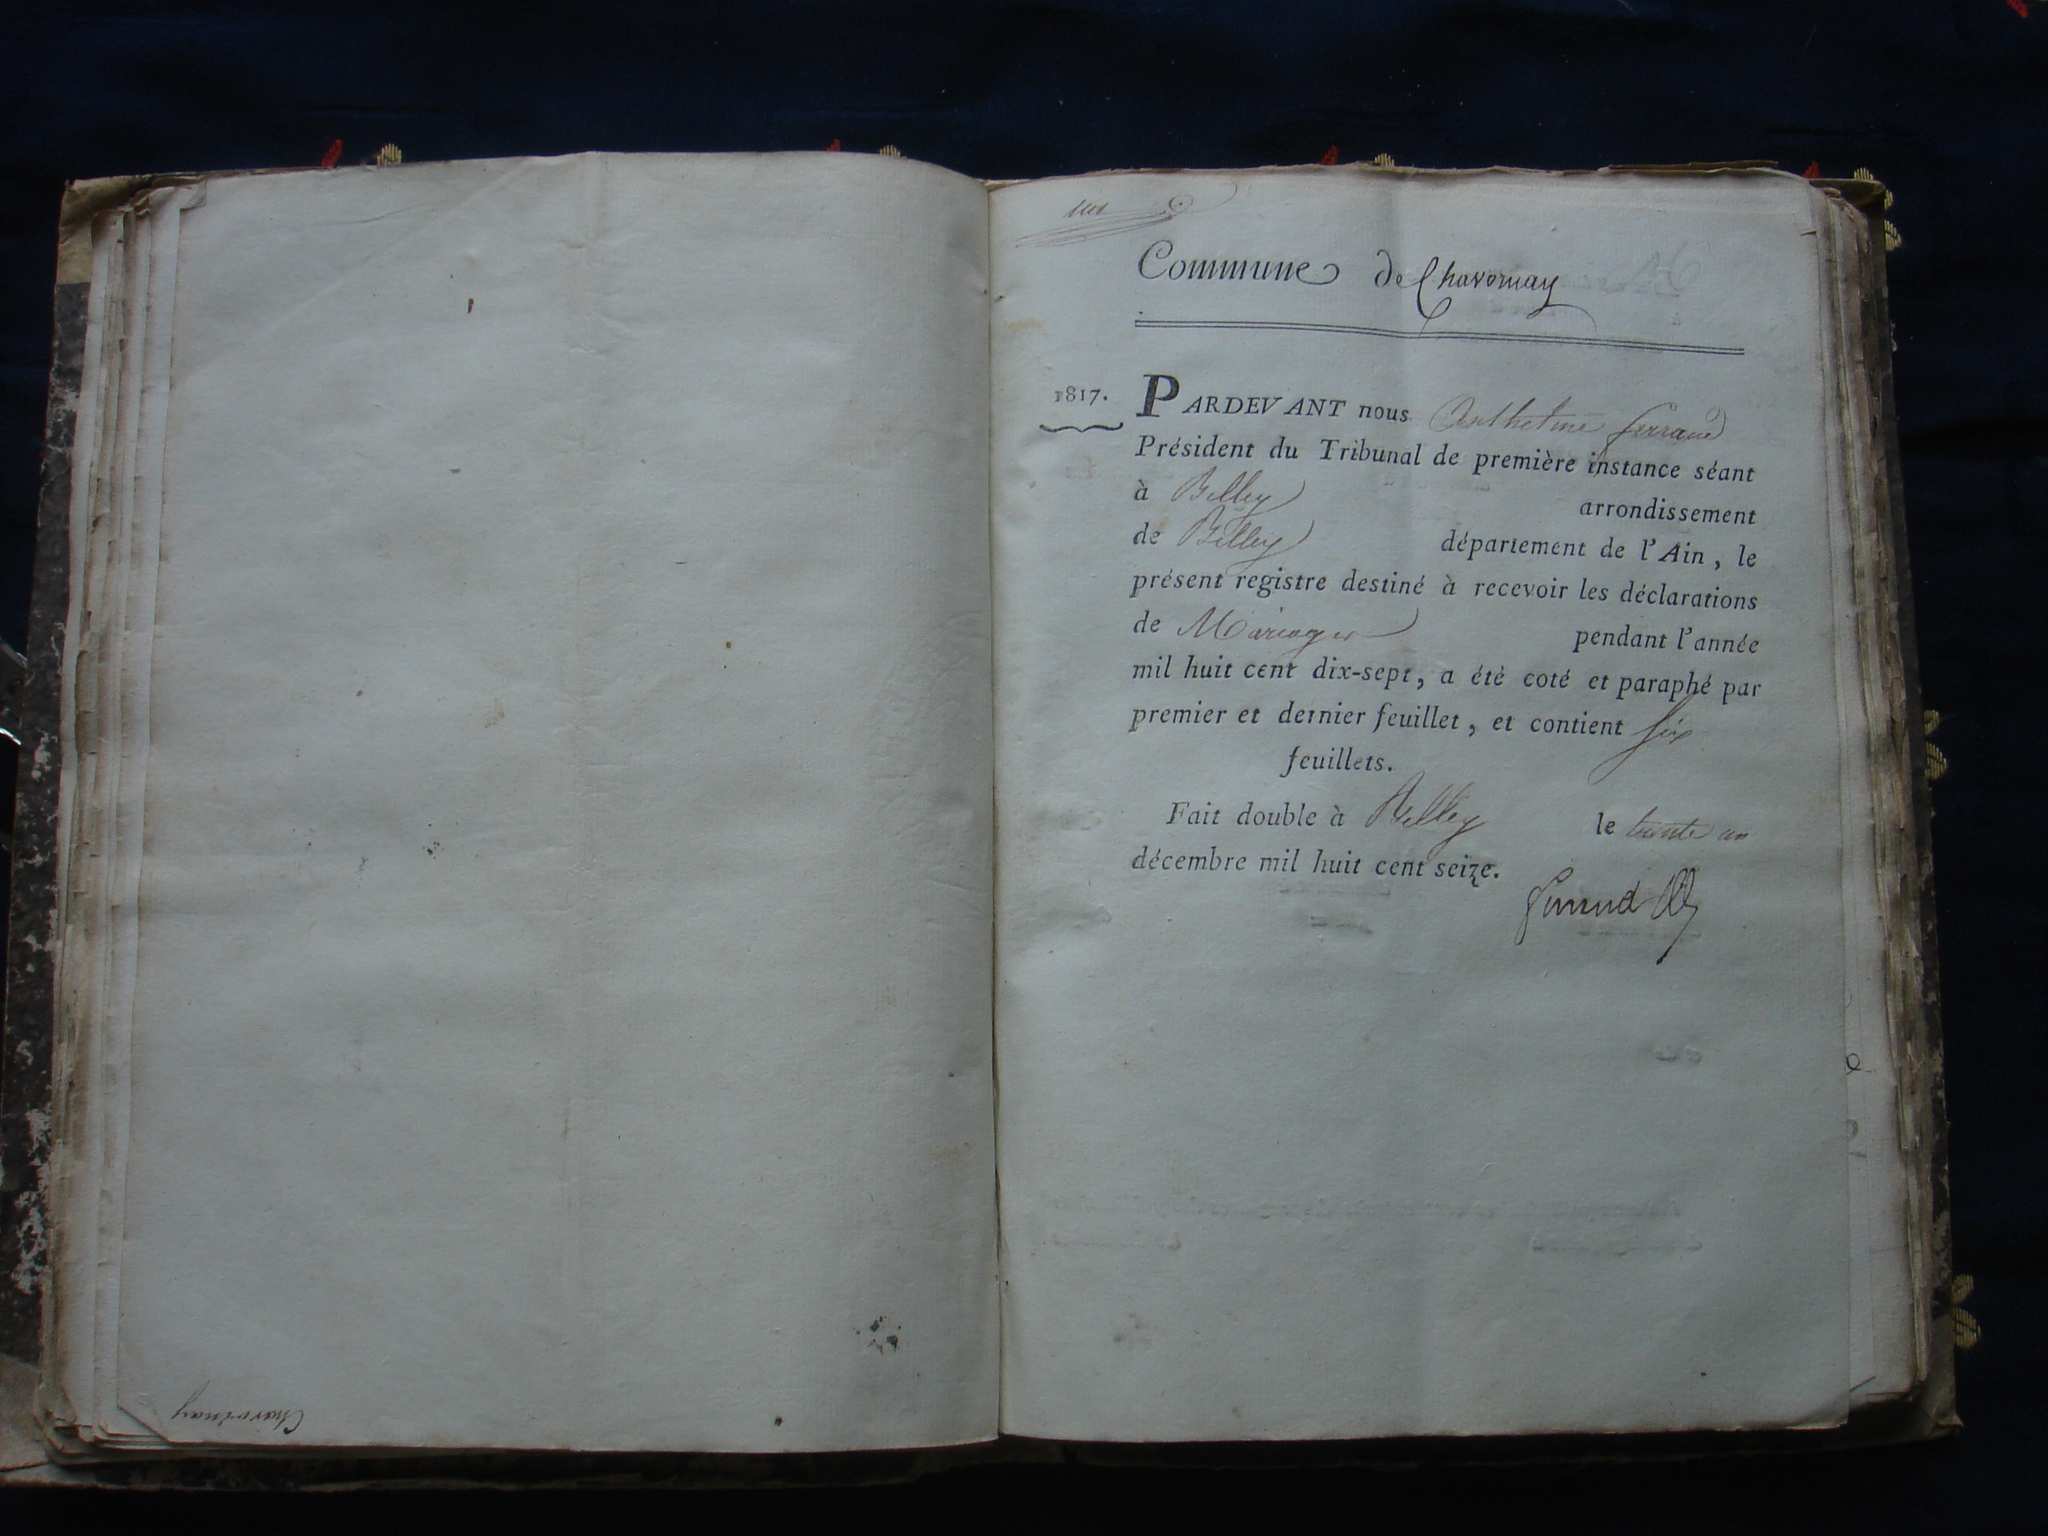 Chavornay
un
Commune de Chavornay
1817.
PARDEVANT nous Anthelme ferrand
Président du Tribunal de première instance séant
à Belley arrondissement
de Belley département de l'Ain, le
présent registre destiné à recevoir les déclarations
de Mariages pendant l'année
mil huit cent dix-sept, a été coté et paraphé par
premier et dernier feuillet, et contient six
feuillets.
Fait double à Belley le trente un
décembre mil huit cent seize.
ferrand